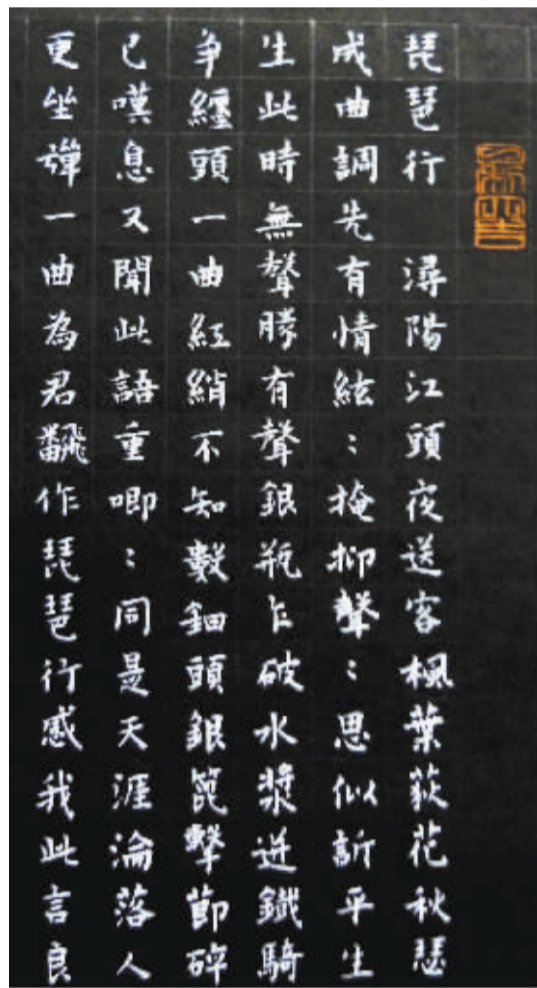 琵琶行 潯陽江頭夜送客楓葉荻花秋瑟
成曲調先有情絃：掩抑聲：思似訴平生
生此時無聲勝有聲銀瓶乍破水漿迸鐵騎
争纏頭一曲紅綃不知數鈿頭銀篦擊節碎
已嘆息又聞此語重唧：同是天涯淪落人
更坐彈一曲為君飜作琵琶行感我此言良